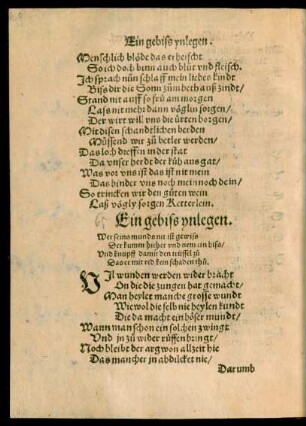 Ein gebiss ynlegen.
Menschlich blöde das erheischt
So ich doch binn auch blůt vnd fleisch.
Ich sprach nůn schlaff mein liebes kindt
Biss dir die Sonn zům beth auß zindt/
Stand nit auff so frů am morgen
Lass nit mehr dann väglin sorgen/
Der wirt will vns die ürten borgen/
Mit disen schandtlichen berden
Můssend wir zů betler werden/
Das loch treffen in der stat
Da vnser herdt der kůh aus gat/
Was vor vns ist das ist nit mein
Das hinder vns noch mein noch dein/
So trincken wir den gůten wein
Laß vägly sorgen Ketterlein.
Ein gebiss ynlegen.
Wer seins munds nit ist gewiss
Der kumm hieher vnd nem ein biss/
Vnd knüpff damit den teüffel zů
Das er mit red kein schaden thů.
Vil wunden werden wider bracht
On die die zungen hat gemacht/
Man heylet manche grosse wundt
Wiewol die selb nie heylen kundt
Die da macht ein böser mundt/
Wann man schon ein solchen zwingt
Vnd jn zů wider růffen bringt/
Noch bleibt der argwon allzeit hie
Das mancher in abdilcket nie/
Darumb